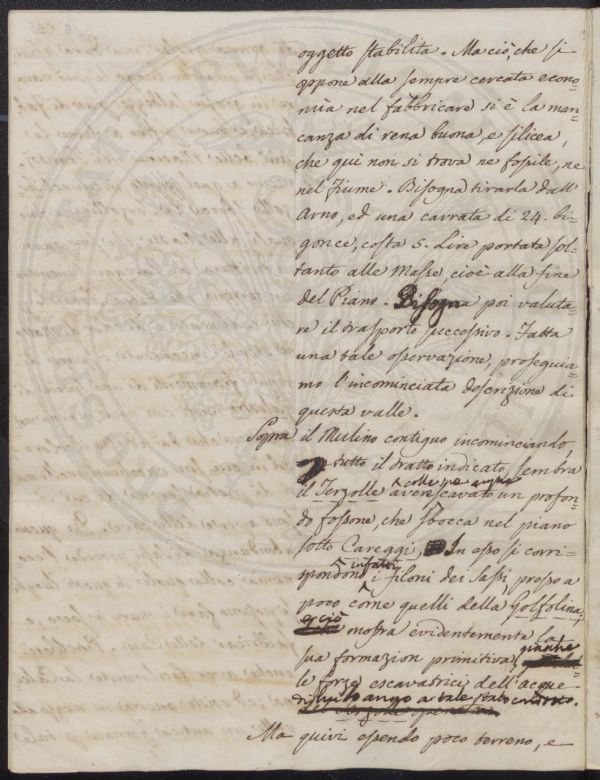 oggetto stabilita. Ma ciò, che si
oppone alla sempre cercata econo=
mia nel fabbricare si è la man=
canza di rena buona, e silicea,
che qui non si trova ne fossile, ne
nel fiume. Bisogna tirarla dall'
Arno, ed una carrata di 24. bi=
gonce, costa 5. Lire portata sol=
tanto alle Masse, cioè alla fine
del Piano. Bisogna poi valuta=
re il trasporto successivo. Fatta
una tale osservazione, proseguia=
mo l'incominciata descrizione di
questa valle.
Sopra il Mulino contiguo incominciando,
tutto il tratto indicato, sembra
colle sue acque
il Terzolle avere scavato un profon=
do fossone, che sbocca nel piano
sotto Careggi. In esso si corri=
infatti
spondono i filoni dei Sassi, presso a
poco come quelli della Golfolina;
e ciò mostra evidentemente la
sua formazion primitiva, quanto
le forze escavatrici dell'acque
a tale stato
Ma quivi essendo poco terreno, e